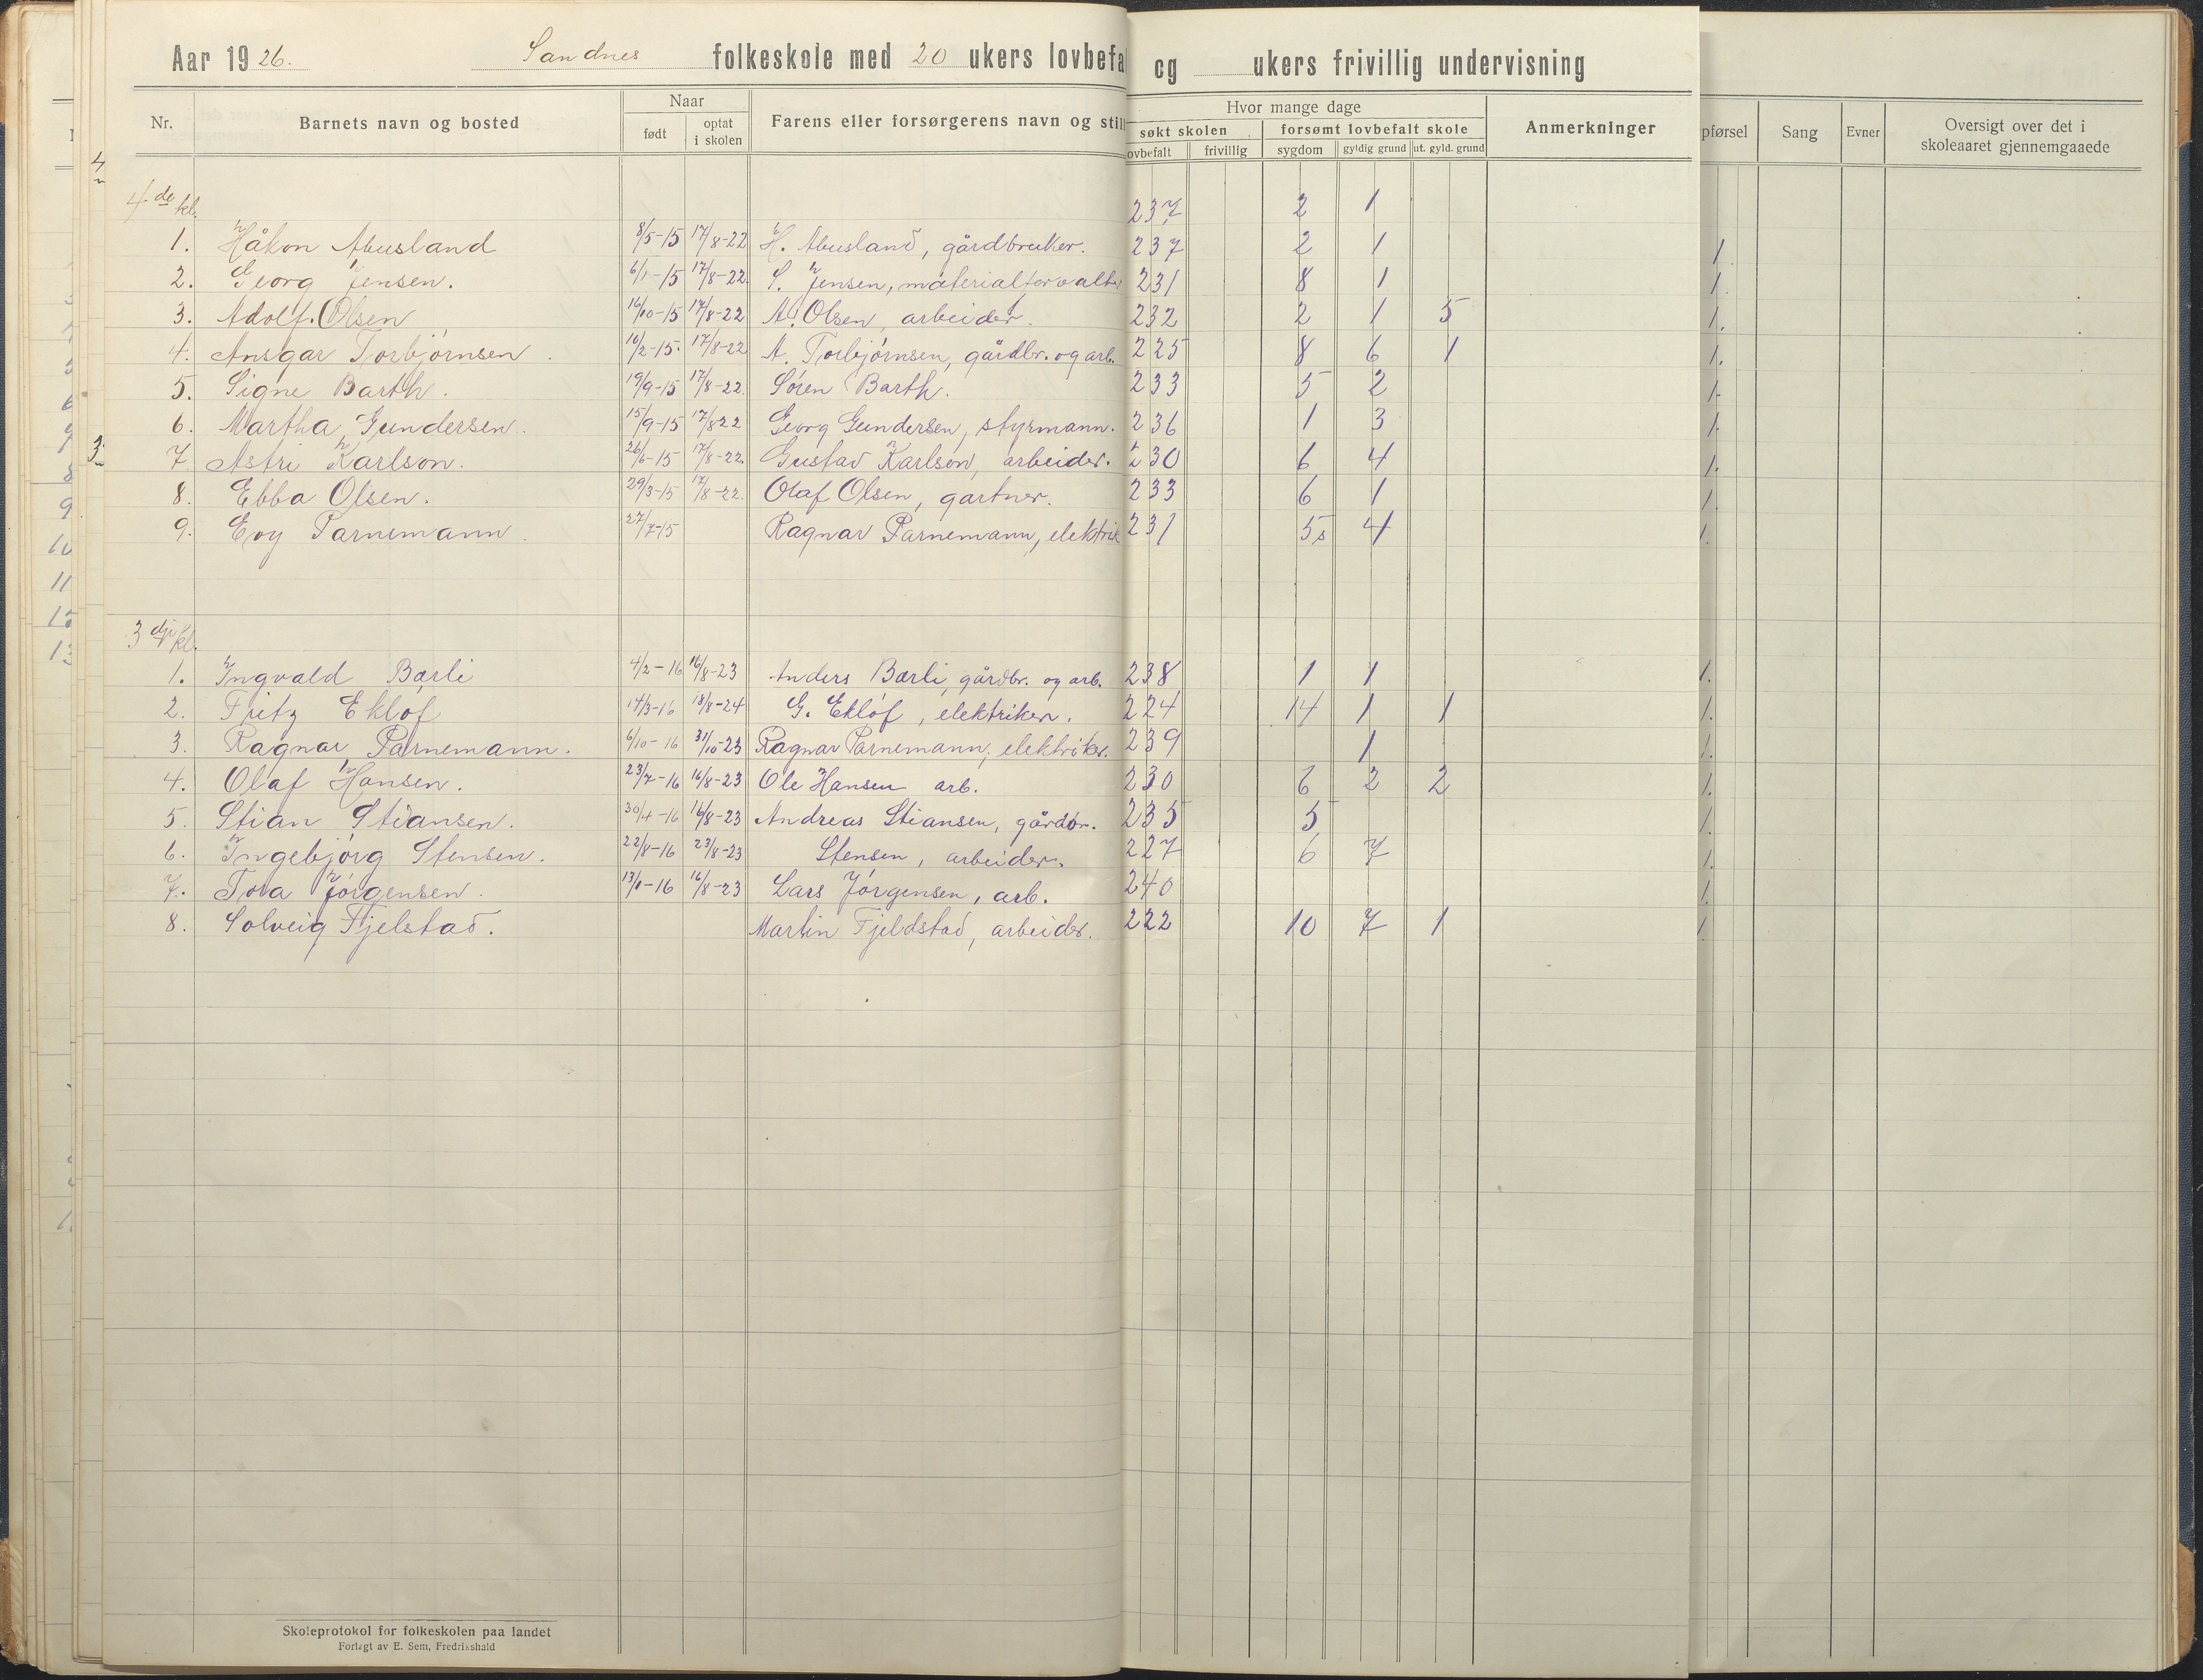 Aar 1926. Sandnes folkeskole med 20 ukers lovbefa og ukers frivillig undervisning
Nr. Barnets navn og bosted Naar født optat i skolen Farens eller forsørgerens navn og still Hvor mange dage søkt skolen ovbefalt frivillig forsømt lovbefalt skole sygdom gyldig grund ut. gyld. grund Anmerkninger pførsel Sang Evner Oversigt over det i skoleaaret gjennemgaaede
4de kl. 237 2 1
1. Håkon Abusland 8/5-15 17/8-22 H. Abusland, gårdbruker. 237 2 1 1
2. Georg Jensen. 6/1-15 17/8-22. S. Jensen, materialforvalter 231 8 1 1.
3. Adolf. Olsen 16/10-15 17/8-22 A. Olsen, arbeider. 232 2 1 5 1.
4. Ansgar Torbjørnsen. 16/2-15. 17/8-22 A. Torbjørnsen, gårdbr. og arb. 225 8 6 1 1.
5. Signe Barth. 19/9-15 17/8-22. Søren Barth. 233 5 2 1.
6. Martha Gundersen. 15/9-15 17/8 22 Georg Gundersen, styrmann. 236 1 3 1.
7 Astri Karlson. 26/6-15 17/8-22. Gustav Karlsen, arbeider. 230 6 4 1.
8. Ebba Olsen. 29/3-15 17/8-22. Olaf Olsen, gartner. 233 6 1 1.
9. Evy Parnemann. 27/7-15 Ragnar Parnemann, elektrik 231 5 4 1.
3dje kl.
1. Ingvald Bærli 4/2-16 16/8-23 Anders Bærli, gårdbr. og arb. 238 1 1 1.
2. Fritz Ekløf 14/3-16 18/8-24 G. Ekløf, elektriker. 224 14 1 1 1.
3. Ragnar Parnemann. 6/10-16 31/10-23 Ragnar Parnemann, elektriker. 239 1 1.
4. Olaf Hansen. 23/7-16 16/8-23 Ole Hansen arb. 230 6 2 2 1.
5. Stian Stiansen. 30/4-16 16/8-23 Andreas Stiansen, gårdbr. 235 5 1.
6. Ingebjørg Stensen. 22/8-16 23/8-23 Stensen, arbeider. 227 6 7 1.
7. Tora Jørgensen. 16/8-23 Lars Jørgensen, arb. 240 1.
8. Solveig Fjelstad. Martin Fjeldstad, arbeider. 222 10 7 1 1.
Skoleprotokol for folkeskolen paa landet
Forlagt av E. Sem, Fredrikshald